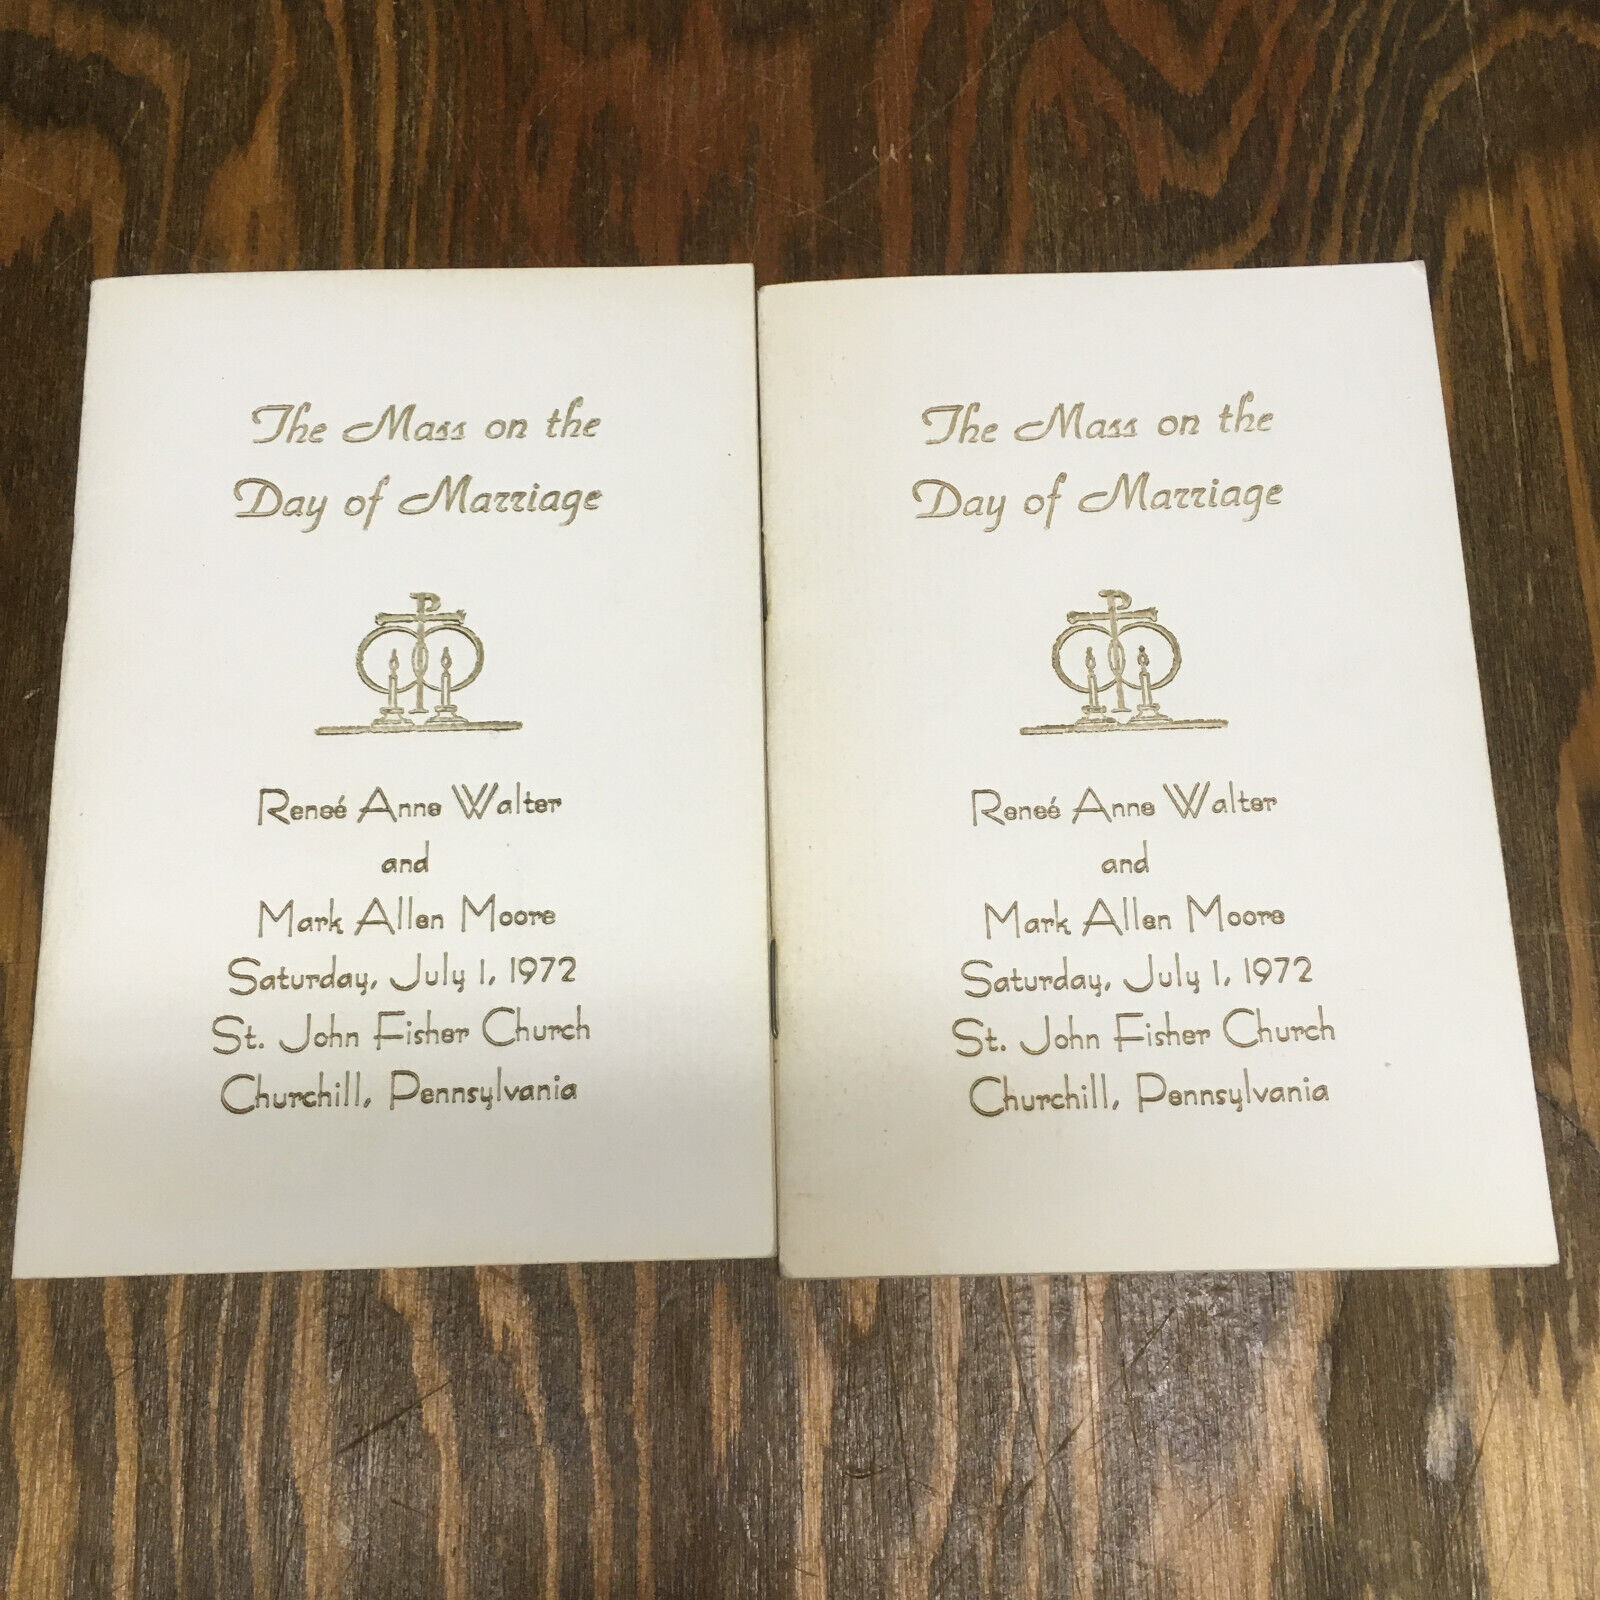 The Mass on the
Day of Marriage
Reneé Anne Walter
and
Mark Allen Moore
Saturday, July 1, 1972
St. John Fisher Church
Churchill, Pennsylvania
The Mass on the
Day of Marriage
Reneé Anne Walter
and
Mark Allen Moore
Saturday, July 1, 1972
St. John Fisher Church
Churchill, Pennsylvania